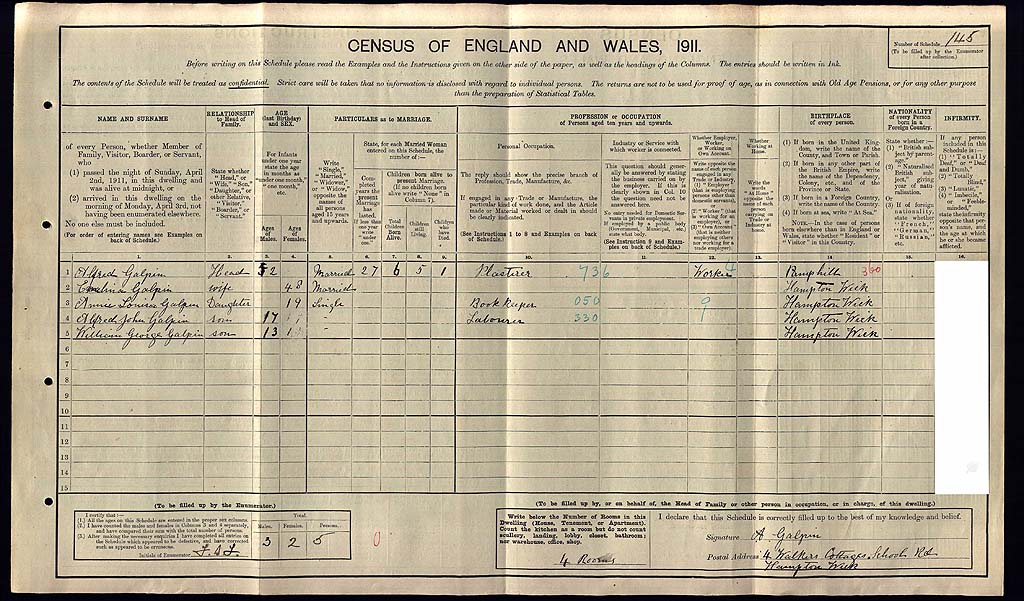 CENSUS OF ENGLAND AND WALES, 1911.
Number of Schedule 145
(To be filled up by the Enumerator after collection.)
Before writing on this Schedule please read the Examples and the Instructions given on the other side of the paper, as well as the headings of the Columns. The entries should be written in Ink.
The contents of the Schedule will be treated as confidential. Strict care will be taken that no information is disclosed with regard to individual persons. The returns are not to be used for proof of age, as in connection with Old Age Pensions, or for any other purpose
than the preparation of Statistical Tables.
NAME AND SURNAME
of every Person, whether Member of Family, Visitor, Boarder, or Servant, who
(1) passed the night of Sunday, April 2nd, 1911, in this dwelling and was alive at midnight, or
(2) arrived in this dwelling on the morning of Monday, April 3rd, not having been enumerated elsewhere.
No one else must be included.
(For order of entering names see Examples on back of Schedule.)
RELATIONSHIP to Head of Family.
State whether "Head," or "Wife," "Son," "Daughter," or other Relative, "Visitor," "Boarder," or "Servant."
AGE (last Birthday) and SEX.
For Infants under one year state the age in months as "under one month," "one month," etc.
Ages of Males.
Ages of Females.
PARTICULARS as to MARRIAGE.
Write "Single," "Married," "Widower," or "Widow," opposite the names of all persons aged 15 years and upwards.
State, for each Married Woman entered on this Schedule, the number of:—
Completed years the present Marriage has lasted. If less than one year write "under one."
Children born alive to present Marriage. (If no children born alive write "None" in Column 7).
Total Children Born Alive.
Children still Living.
Children who have Died.
PROFESSION or OCCUPATION
of Persons aged ten years and upwards.
Personal Occupation.
The reply should show the precise branch of Profession, Trade, Manufacture, &c.
If engaged in any Trade or Manufacture, the particular kind of work done, and the Article made or Material worked or dealt in should be clearly indicated.
(See Instructions 1 to 8 and Examples on back of Schedule.)
Industry or Service with which worker is connected.
This question should generally be answered by stating the business carried on by the employer. If this is clearly shown in Col. 10 the question need not be answered here.
No entry needed for Domestic Servants in private employment. If employed by a public body (Government, Municipal, etc.) state what body.
(See Instruction 9 and Examples on back of Schedule.)
Whether Employer, Worker, or Working on Own Account.
Whether Working at Home.
BIRTHPLACE of every person.
(1) If born in the United Kingdom, write the name of the County, and Town or Parish.
(2) If born in any other part of the British Empire, write the name of the Dependency, Colony, etc., and of the Province or State.
(3) If born in a Foreign Country, write the name of the Country.
(4) If born at sea, write "At Sea."
NOTE.—In the case of persons born elsewhere than in England or Wales, state whether "Resident" or "Visitor" in this Country.
NATIONALITY of every Person born in a Foreign Country.
INFIRMITY.
1. 2. 3. 4. 5. 6. 7. 8. 9. 10. 11. 12. 13. 14. 15. 16.
1 Alfred Galpin Head 52 Married 27 6 5 1 Plasterer 736 Worker Pamphill 360
2 Galpin wife 43 Married Hampton Wick
3 Annie Louisa Galpin Daughter 19 Single Book Keeper 050 9 Hampton Wick
4 Alfred John Galpin son 17 Labourer 330 Hampton Wick
5 William George Galpin son 13 Hampton Wick
6
7
8
9
10
11
12
13
14
15
(To be filled up by the Enumerator.)
I certify that:—
(1.) All the ages on this Schedule are entered in the proper sex columns.
(2.) I have counted the males and females in Columns 3 and 4 separately, and have compared their sum with the total number of persons.
(3.) After making the necessary enquiries I have completed all entries on the Schedule which appeared to be defective, and have corrected such as appeared to be erroneous.
Initials of Enumerator
Total.
Males. Females. Persons.
3 2 5
0
(To be filled up by, or on behalf of, the Head of Family or other person in occupation, or in charge, of this dwelling.)
Write below the Number of Rooms in this Dwelling (House, Tenement, or Apartment). Count the kitchen as a room but do not count scullery, landing, lobby, closet, bathroom; nor warehouse, office, shop.
4 Rooms
I declare that this Schedule is correctly filled up to the best of my knowledge and belief.
Signature A Galpin
Postal Address 4 Walkers Cottages School Rd
Hampton Wick